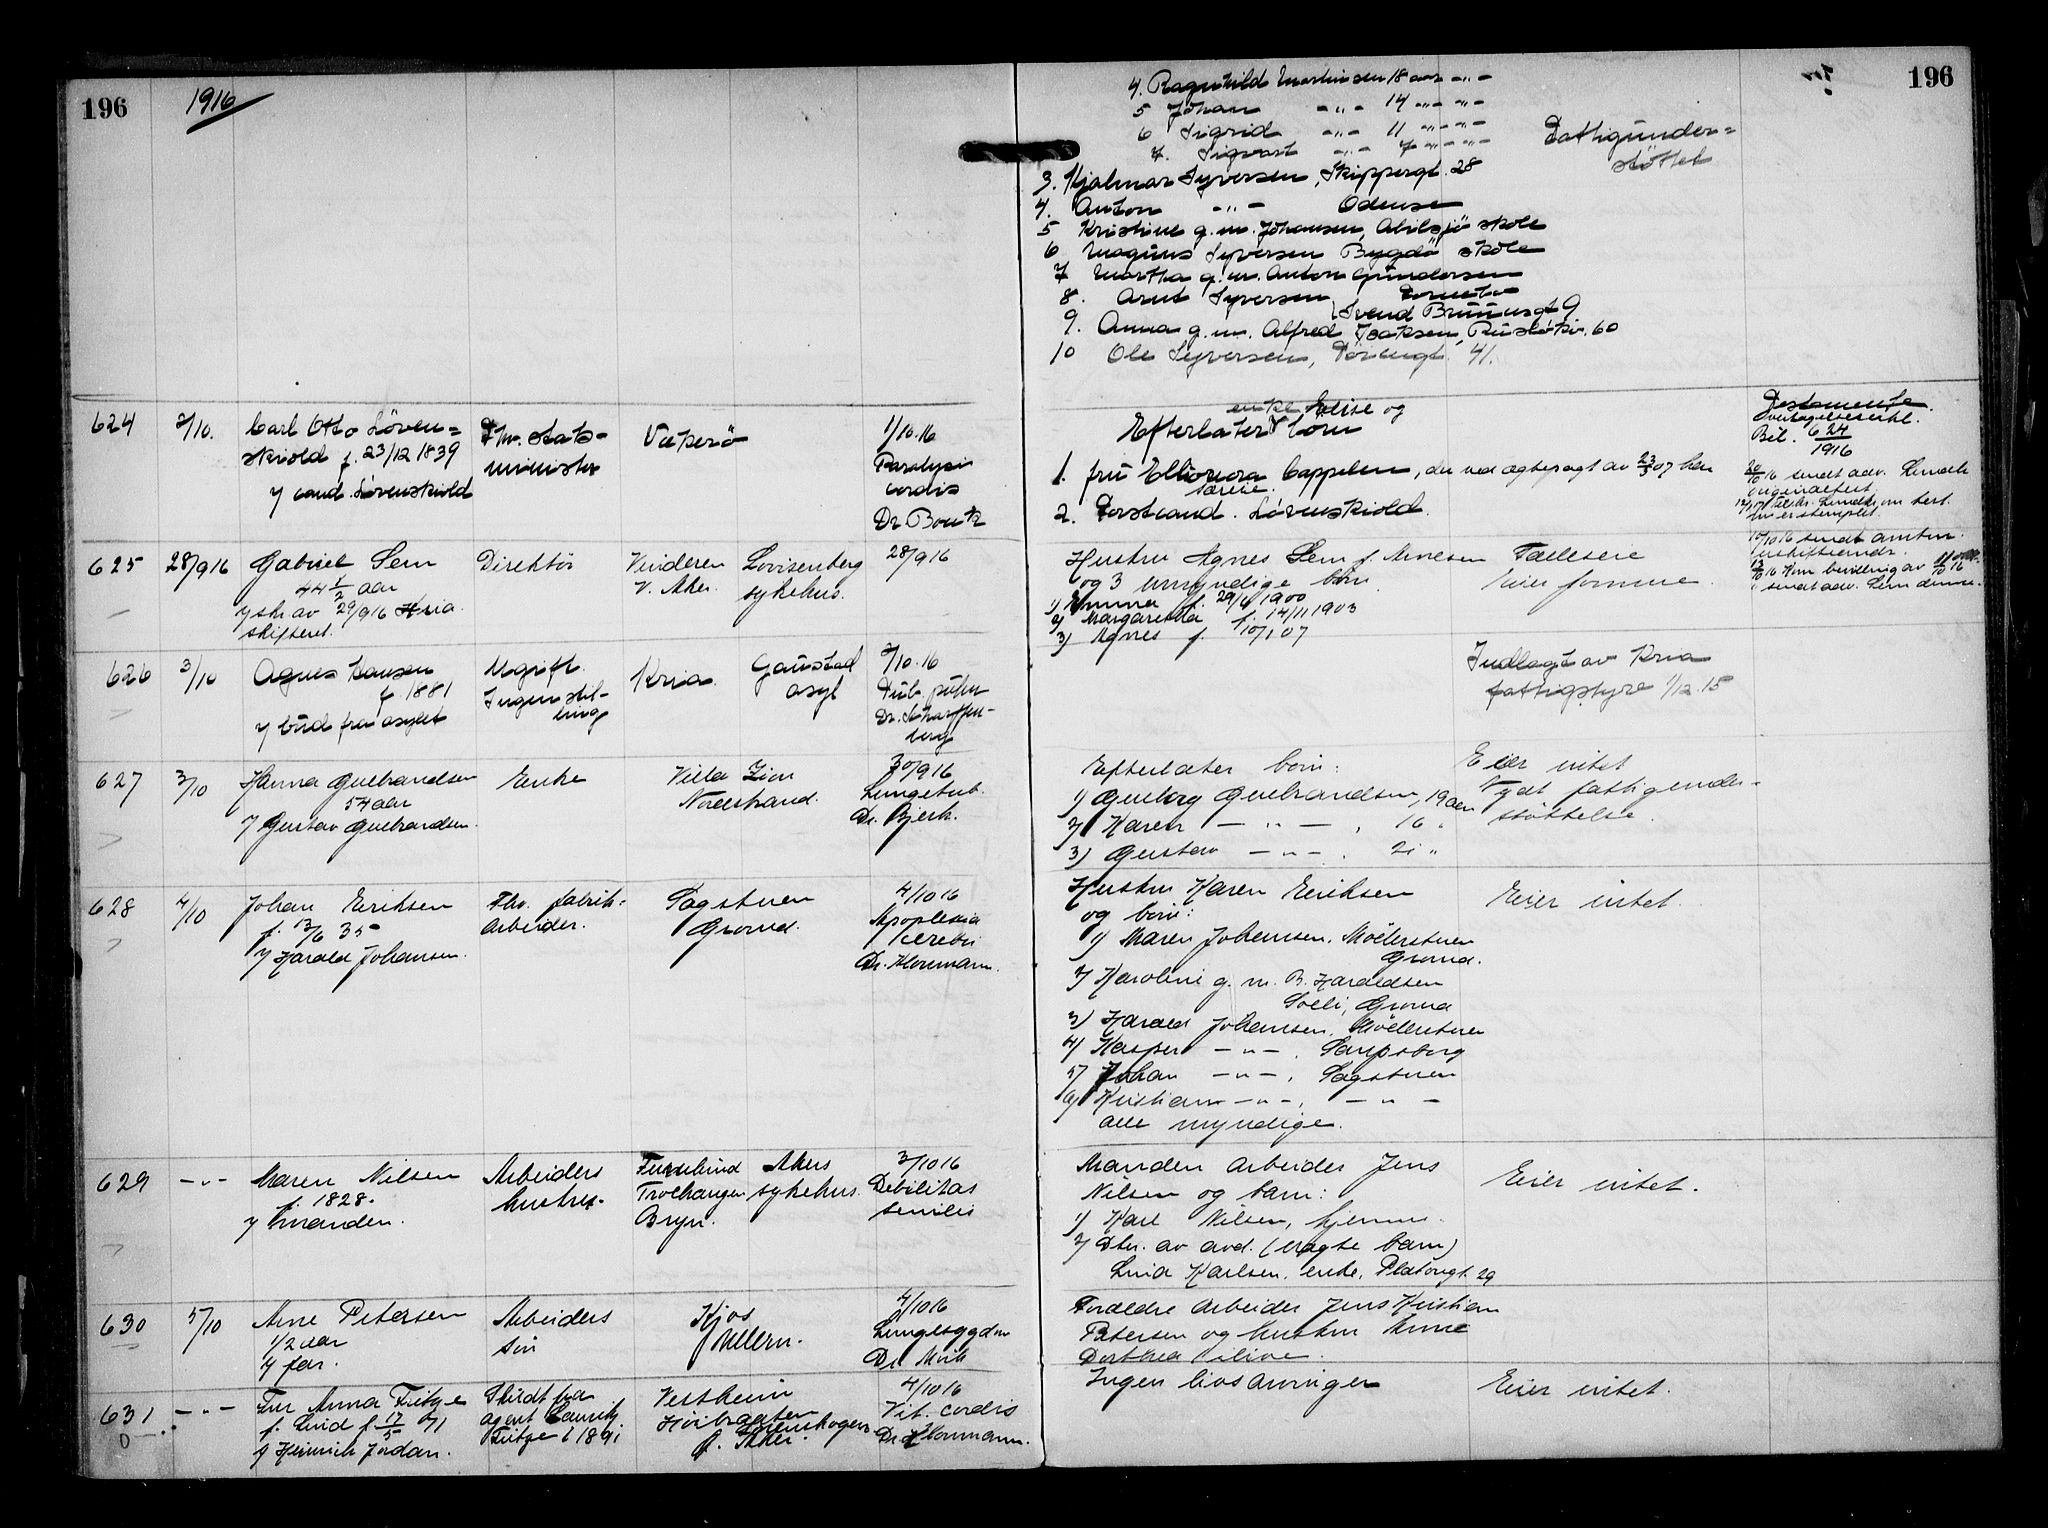 196
1916
196
4. Ragnhild Martinsen 18 aar -"-
5 Johan -"- 14 -"- -"-
6 Sigrid -"- 11 -"- -"-
7. Sigvart -"- 7 -"- -"-
Fattigunder=
støttet
3. Hjalmar Syversen, Skippergt. 28
4. Anton -"- Odense
5 Kristine g.m. Johansen, Abilsjö skole
6 Magnus Syversen Bygdö skole
7 Martha g.m. Anton Gundersen
8. Arnt Syversen
Svend Bruunsgt 9
9. Anna g.m. Alfred Isaksen, Ruseløkv. 60
10 Ole Syversen, 41.
624
2/10.
Carl Otto Löven=
skiold f. 23/12 1839
v/ cand. Løvenskiold
Fhv. stats-
minister
Vækerö
1/10.16
Paralysis
cordis
Dr Bonk
enke Elise og
Efterlater børn
1. fru Elleonora Cappelen, der ved egtepagt av 23/3 07 har
særeie.
2. Forstcand. Løvenskiold.
Testamente
Bil. 624
1916
20/10 16 sendt adv. Lundh
625
28/9 16
Gabriel Sem
44 1/2 aar
v/ skr av 29/9 16 Kria.
skifteret.
Direktör
Vinderen
V. Aker.
Lovisenberg
sykehus.
28/9 16
Hustru Agnes Sem f. Arnesen
og 3 umyndige börn
1) Emma f. 29/4 1900
2) Margaretha f. 14/11 1903
3) Agnes f. 10/1 07
Fælleseie
Eier formue.
10/10 16 sendt amtm.
sendt adv. Sem denne.
626
3/10
Agnes Hansen
f. 1881
v/ bud fra asylet
Ugift.
Ingen stil-
ling
Kria.
Gaustad
asyl
2/10.16
Tub. pulm
Dr. Scharffen-
berg
Indlagt av Kria
fattigstyre 1/12.15
627
3/10
Hanna Gulbrandsen
54 aar
v/ Gustav Gulbrandsen.
Enke
Villa Zion
Nordstrand.
30/9 16
Lungetub.
Dr. Bjerk.
Efterlater börn:
1) Gunborg Gulbrandsen, 19 aar
2) Karen -"- , 16 "
3) Gustav -"- , 21 "
Eier intet
Nydt fattigunder-
støttelse.
628
4/10
Johan Eriksen
f. 13/6 35
v/ Harald Johansen.
Fhv. fabrik-
arbeider.
Sagstuen
Grorud.
4/10 16
Apoplexia
cerebri
Dr. Klonmann.
Hustru Karen Eriksen
og börn:
1) Maren Johansen, Möllerstuen
Grorud.
2) Karoline g. m. B. Haraldsen
Solli, Grorud
3) Harald Johansen, Möllerstuen
4) Kasper -"-, Sarpsborg
5) Johan -"-, Sagstuen
6) Kristian -"-, -"-
alle myndige.
Eier intet.
629
-"-
Maren Nilsen
f. 1828.
v/ manden.
Arbeiders
hustru.
Furulund
Trolhaugen
Bryn.
Akers
sykehus.
3/10 16
Debilitas
senilis
Manden arbeider Jens
Nilsen og barn:
1) Karl Nilsen, hjemme.
2) Dtr. av avd. (uegte barn)
Lina Karlsen, enke, Platousgt. 29
Eier intet.
630
5/10
Arne Petersen
1/2 aar
v/ far.
Arbeiders
sön
Kjos
Ullern.
4/10 16
Lungesygdom
Dr. Mork
Forældre arbeider Jens Kristian
Petersen og hustru Anne
Dorthea Oline.
631
-"-
Fru Anna Fritze
f. Lind f. 17/5 61
v/ Heinrich Jordan.
Skilt fra
agent Lauritz
Fritze i 1891
Vestheim
Høibraaten
Ø. Aker.
4/10 16
Vit. cordis
Dr. Klonmann.
Ingen livsarvinger
Eier intet.